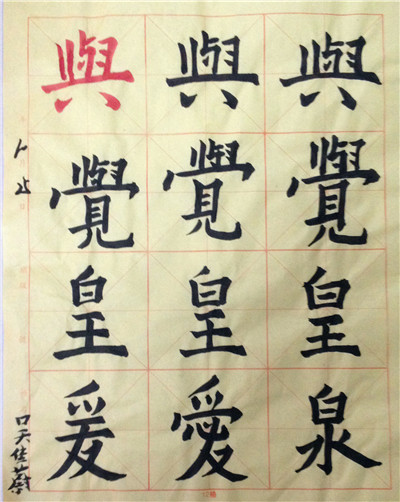 與覺皇泉
與覺皇愛
與覺皇爰
口天佳蔚